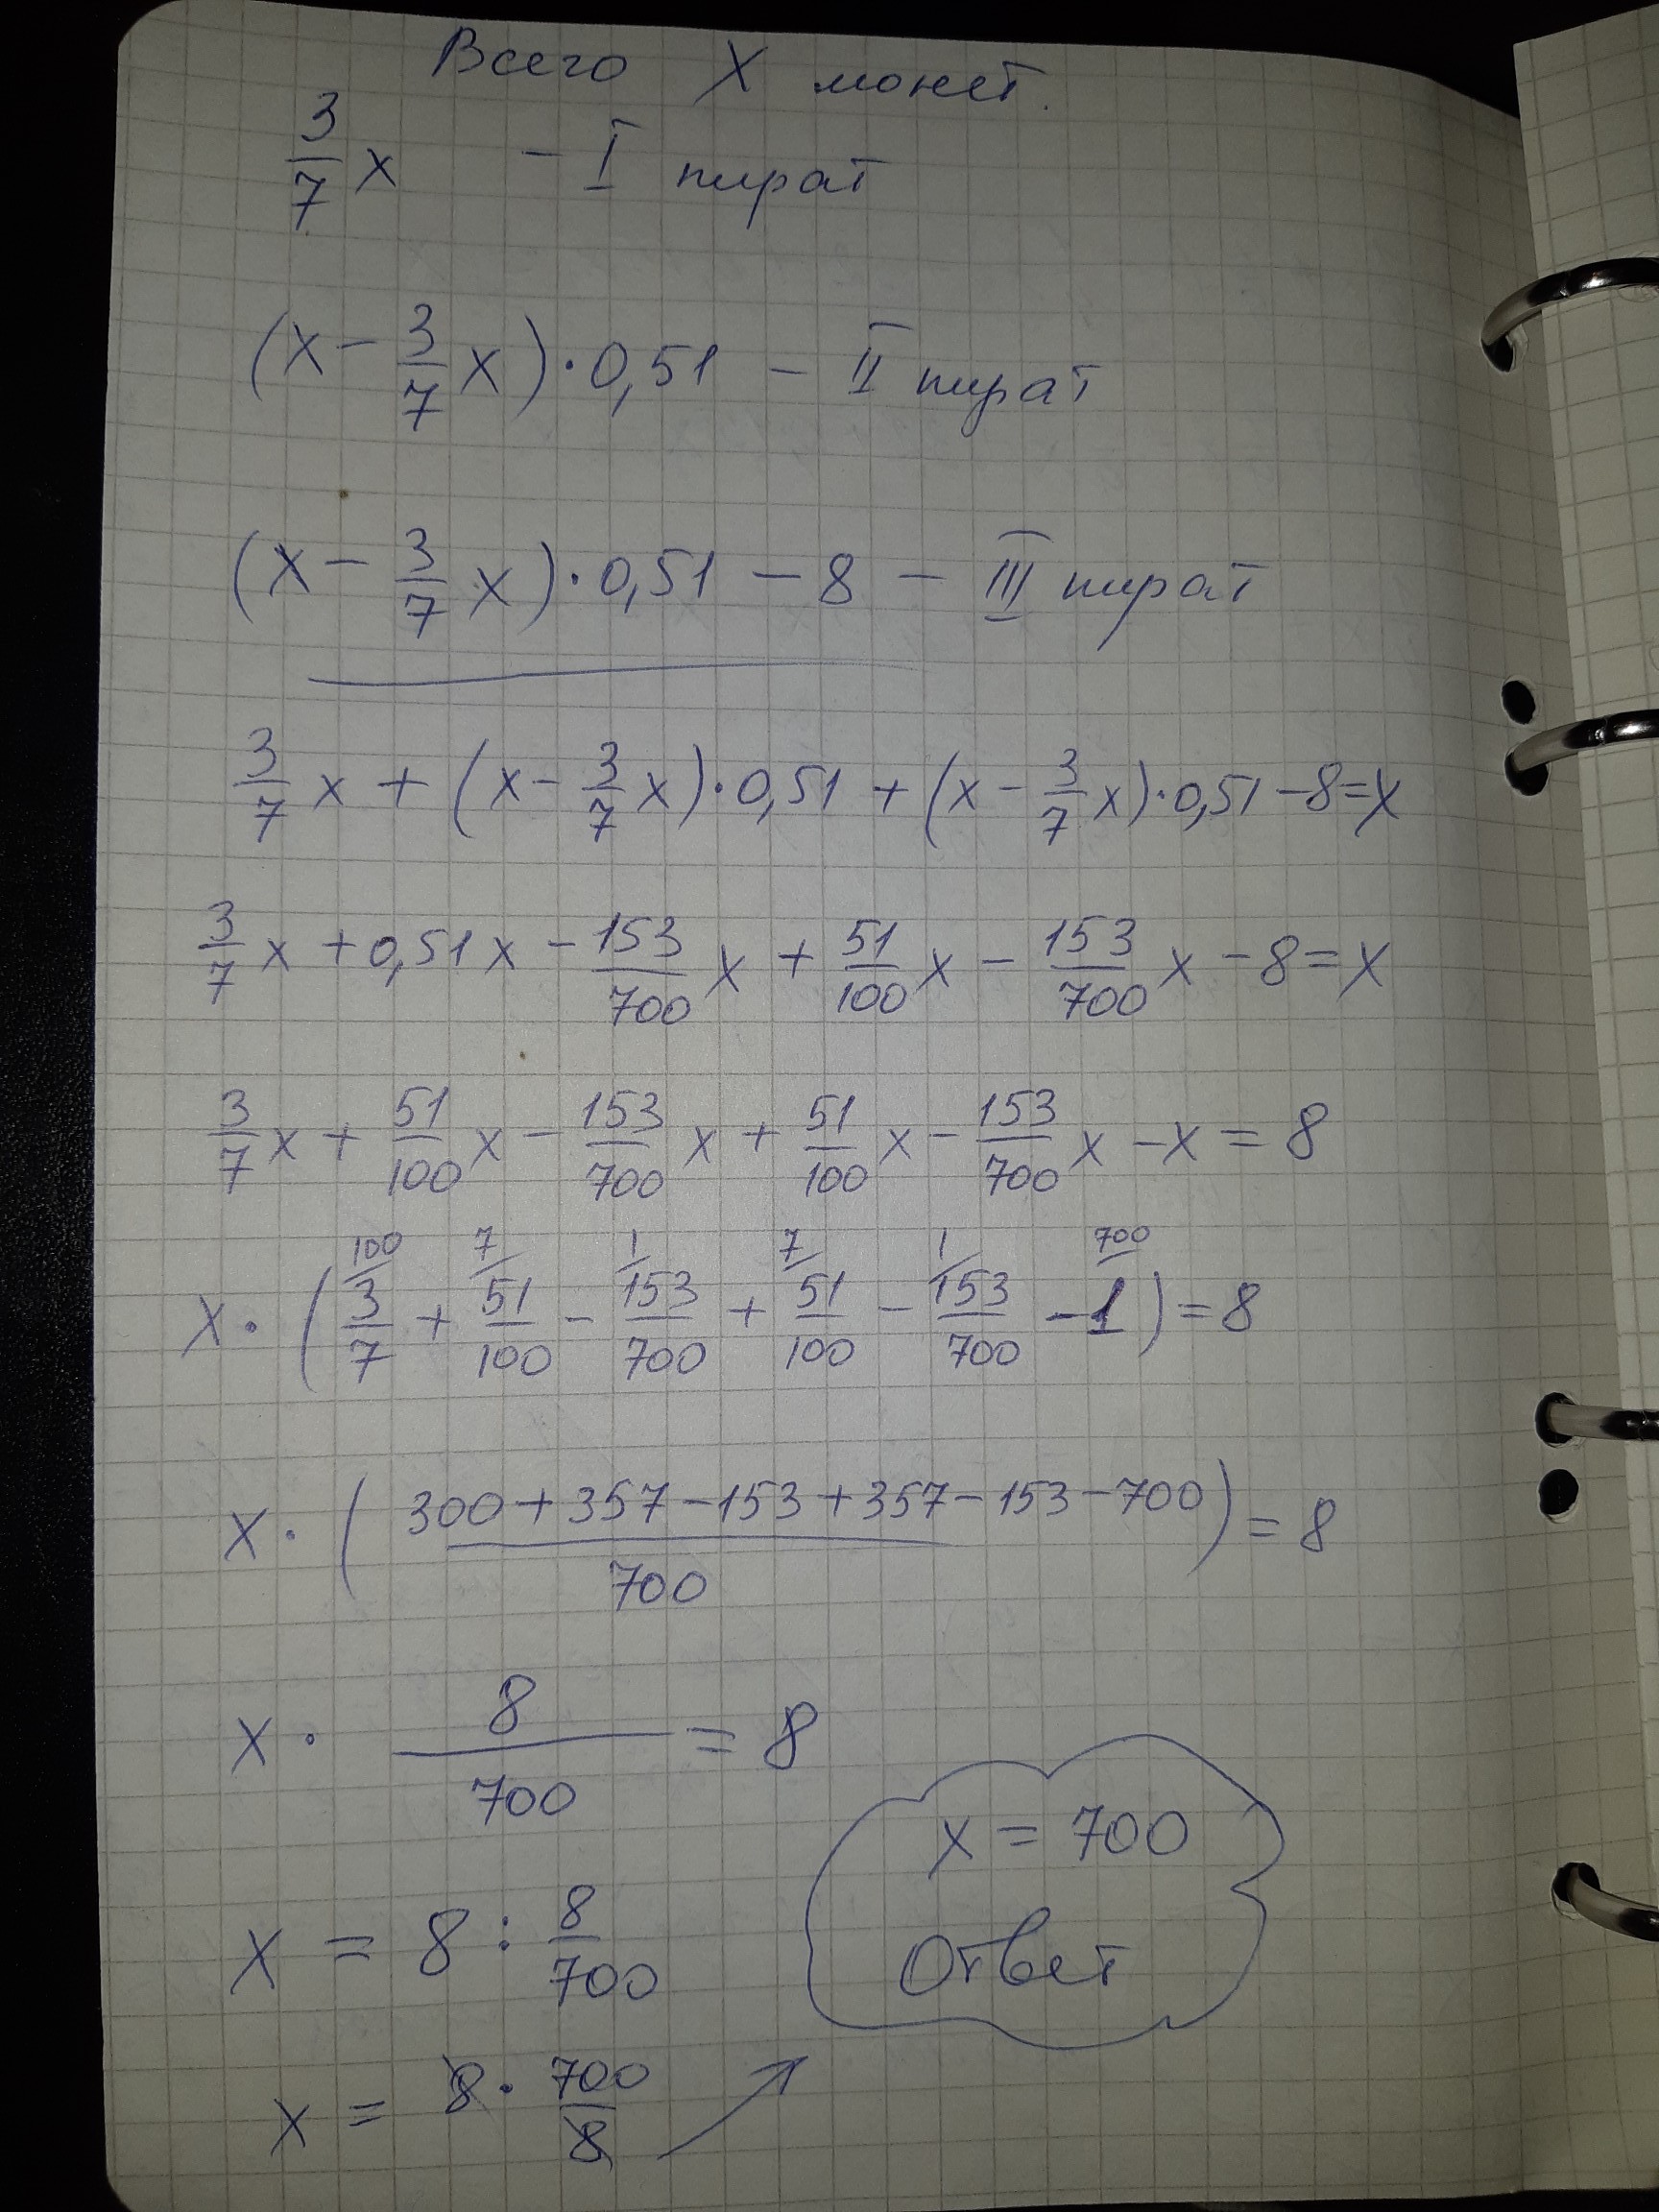 Всего X монет.
3/7 x - I пират
(x - 3/7 x) · 0,51 - II пират
(x - 3/7 x) · 0,51 - 8 - III пират
3/7 x + (x - 3/7 x) · 0,51 + (x - 3/7 x) · 0,51 - 8 = x
3/7 x + 0,51 x - 153/700 x + 51/100 x - 153/700 x - 8 = x
3/7 x + 51/100 x - 153/700 x + 51/100 x - 153/700 x - x = 8
100 7 1 7 1 700
x · (3/7 + 51/100 - 153/700 + 51/100 - 153/700 - 1) = 8
x · (300 + 357 - 153 + 357 - 153 - 700 / 700) = 8
x · 8/700 = 8
x = 700
Ответ
x = 8 : 8/700
x = 8 · 700/8